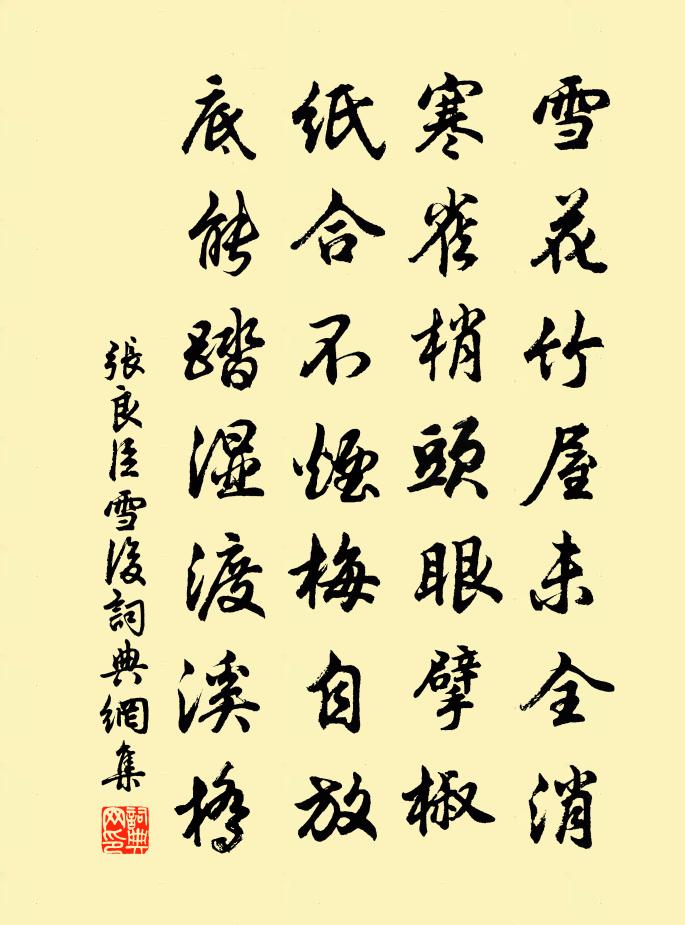 雪花竹屋未全消
寒雀梢頭眼擘椒
紙合不煙梅自放
底能踏濕渡溪橋
張良臣雪後詞典網集
詞典網印